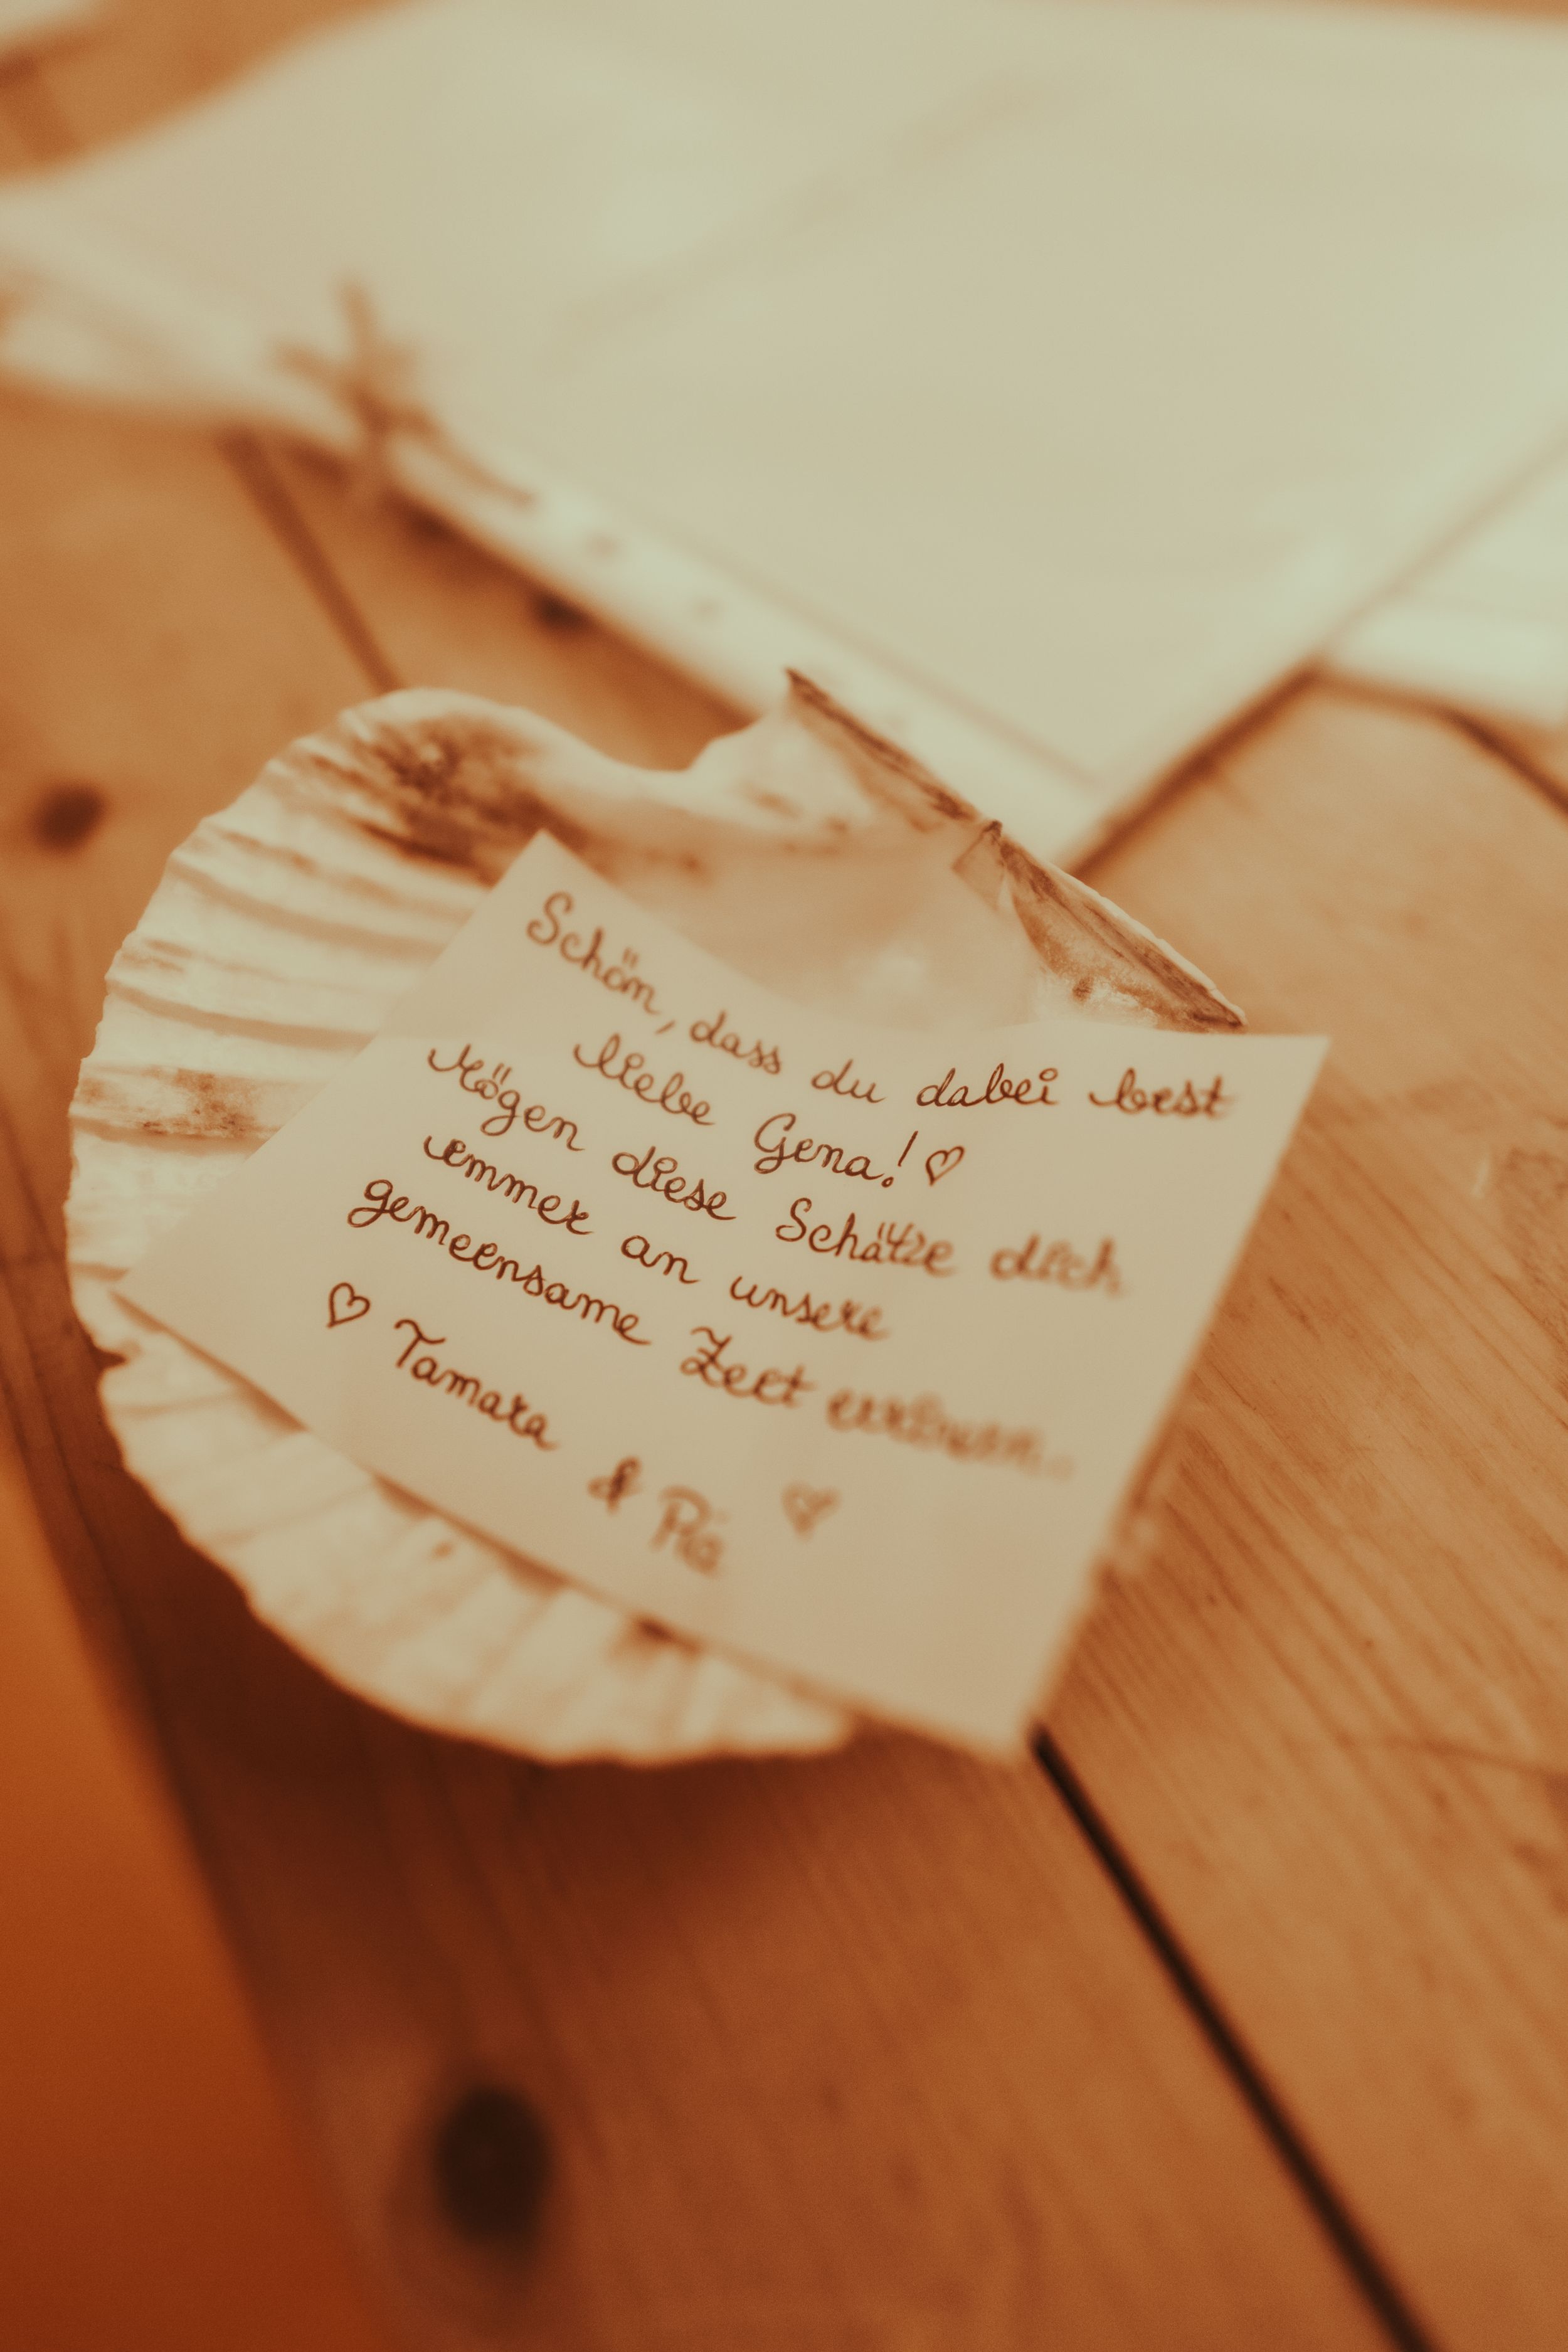 Schön, dass du dabei bist
liebe Gena! ♡
Mögen diese Schätze dich
immer an unsere
gemeinsame Zeit erinnern.
♡ Tamara & Pia ♡